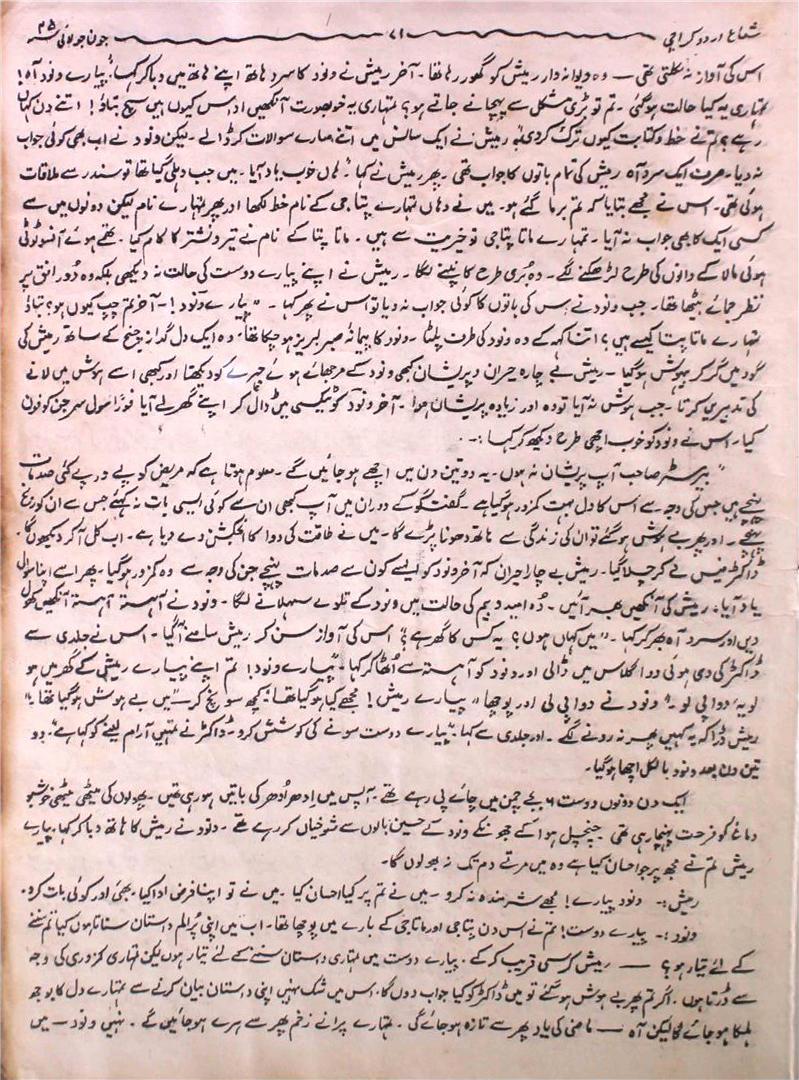 شعاع اردو کراچی ۷۱ جون جولائی ۴۵ء
اس کی آواز نہ نکلتی تھی — وہ دیوانہ وار رمیش کو گھور رہا تھا۔ آخر رمیش نے ونود کا سرد ہاتھ اپنے ہاتھ میں دبا کر کہا: پیارے ونود آہ!
تمہاری یہ کیا حالت ہوگئی۔ تم تو بڑی مشکل سے پہچانے جاتے ہو؟ تمہاری یہ خوبصورت آنکھیں اداس کیوں ہیں سچ بتاؤ! اتنے دن کہاں
رہے؟ تم نے خط و کتابت کیوں ترک کردی؟ رمیش نے ایک سانس میں اتنے سارے سوالات کر ڈالے۔ لیکن ونود نے اب بھی کوئی جواب
نہ دیا۔ صرف ایک سرد آہ رمیش کی تمام باتوں کا جواب تھی۔ پھر رمیش نے کہا: ہاں خوب یاد آیا۔ میں جب دہلی گیا تھا تو سندر سے ملاقات
ہوئی تھی۔ اس نے مجھے بتایا کہ تم برما گئے ہو۔ میں نے وہاں تمہارے پتا جی کے نام خط لکھا اور پھر تمہارے نام لیکن دونوں میں سے
کسی ایک کا بھی جواب نہ آیا۔ تمہارے ماتا پتا جی تو خیریت سے ہیں۔ ماتا پتا کے نام نے تیر و نشتر کا کام کیا۔ تھمے ہوئے آنسو ٹوٹی
ہوئی مالا کے دانوں کی طرح لڑھکنے لگے۔ وہ بُری طرح کانپنے لگا۔ رمیش نے اپنے پیارے دوست کی حالت نہ دیکھی بلکہ وہ دُور افق پر
نظر جمائے بیٹھا تھا۔ جب ونود نے اس کی باتوں کا کوئی جواب نہ دیا تو اس نے پھر کہا۔ "پیارے ونود!۔ آخر تم چپ کیوں ہو؟ بتاؤ
تمہارے ماتا پتا کیسے ہیں؟ اتنا کہہ کے وہ ونود کی طرف پلٹا۔ ونود کا پیمانۂ صبر لبریز ہو چکا تھا۔ وہ ایک دل گداز چیخ کے ساتھ رمیش کی
گود میں گر کر بیہوش ہوگیا۔ رمیش بے چارہ حیران و پریشان کبھی ونود کے مرجھائے ہوئے چہرے کو دیکھتا اور کبھی اسے ہوش میں لانے
کی تدبیریں کرتا۔ جب ہوش نہ آیا تو وہ اور زیادہ پریشان ہوا۔ آخر ونود کو ٹیکسی میں ڈال کر اپنے گھر لے آیا فوراً سول سرجن کو فون
کیا۔ اس نے ونود کو خوب اچھی طرح دیکھ کر کہا:۔
"بیرسٹر صاحب آپ پریشان نہ ہوں۔ یہ دو تین دن میں اچھے ہو جائیں گے۔ معلوم ہوتا ہے کہ مریض کو پے در پے کئی صدمات
پہنچے ہیں جس کی وجہ سے اس کا دل بہت کمزور ہوگیا ہے۔ گفتگو کے دوران میں آپ کبھی ان سے کوئی ایسی بات نہ کہئے جس سے ان کو رنج
پہنچے۔ اور پھر بے ہوش ہو گئے تو ان کی زندگی سے ہاتھ دھونا پڑے گا۔ میں نے طاقت کی دوا کا انجکشن دے دیا ہے۔ اب کل آکر دیکھوں گا۔
ڈاکٹر فیس لے کر چلا گیا۔ رمیش بے چارا حیران کہ آخر ونود کو ایسے کون سے صدمات پہنچے جن کی وجہ سے وہ کمزور ہوگیا۔ پھر اسے اپنا سوال
یاد آیا۔ رمیش کی آنکھیں بھر آئیں۔ وہ امید و بیم کی حالت میں ونود کے تلوے سہلانے لگا۔ ونود نے آہستہ آہستہ آنکھیں کھول
دیں اور سرد آہ بھر کر کہا۔ "میں کہاں ہوں؟ یہ کس کا گھر ہے؟" اس کی آواز سن کر رمیش سامنے آگیا۔ اس نے جلدی سے
ڈاکٹر کی دی ہوئی دوا گلاس میں ڈالی اور ونود کو آہستہ سے اٹھا کر کہا۔ "پیارے ونود! تم اپنے پیارے رمیش کے گھر میں ہو
لو یہ دوا پی لو۔" ونود نے دوا پی لی اور پوچھا "پیارے رمیش! مجھے کیا ہوگیا تھا؟ کچھ سوچ کر "میں بے ہوش ہوگیا تھا؟"
رمیش ڈرا کہ یہ کہیں پھر نہ رونے لگے۔ اور جلدی سے کہا۔ "پیارے دوست سونے کی کوشش کرو۔ ڈاکٹر نے تمہیں آرام لینے کو کہا ہے۔" دو
تین دن بعد ونود بالکل اچھا ہوگیا۔
ایک دن دونوں دوست ۶ بجے چمن میں چائے پی رہے تھے۔ آپس میں ادھر اُدھر کی باتیں ہو رہی تھیں۔ پھولوں کی میٹھی میٹھی خوشبو
دماغ کو فرحت پہنچا رہی تھی چنچل ہوا کے جھونکے ونود کے حسین بالوں سے شوخیاں کر رہے تھے۔ ونود نے رمیش کا ہاتھ دبا کر کہا۔ پیارے
رمیش تم نے مجھ پر جو احسان کیا ہے وہ میں مرتے دم تک نہ بھولوں گا۔
رمیش:۔ ونود پیارے! مجھے شرمندہ نہ کرو۔ میں نے تم پر کیا احسان کیا۔ میں نے تو اپنا فرض ادا کیا۔ بھئی اور کوئی بات کرو۔
ونود:۔ پیارے دوست! تم نے اس دن پتا جی اور ماتا جی کے بارے میں پوچھا تھا۔ اب میں اپنی پُر الم داستان سناتا ہوں کیا تم سننے
کے لئے تیار ہو؟ — رمیش کرسی قریب کر کے۔ پیارے دوست میں تمہاری داستان سننے کے لئے تیار ہوں لیکن تمہاری کمزوری کی وجہ
سے ڈرتا ہوں۔ اگر تم پھر بے ہوش ہو گئے تو میں ڈاکٹر کو کیا جواب دوں گا۔ اس میں شک نہیں اپنی داستان بیان کرنے سے تمہارے دل کا بوجھ
ہلکا ہو جائے گا لیکن آہ — ماضی کی یاد پھر سے تازہ ہو جائے گی۔ تمہارے پرانے زخم پھر سے ہرے ہو جائیں گے۔ نہیں ونود — میں